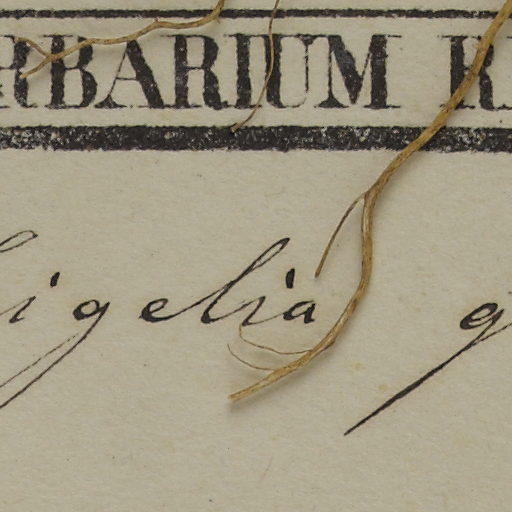 RBARIUM R
igelia g